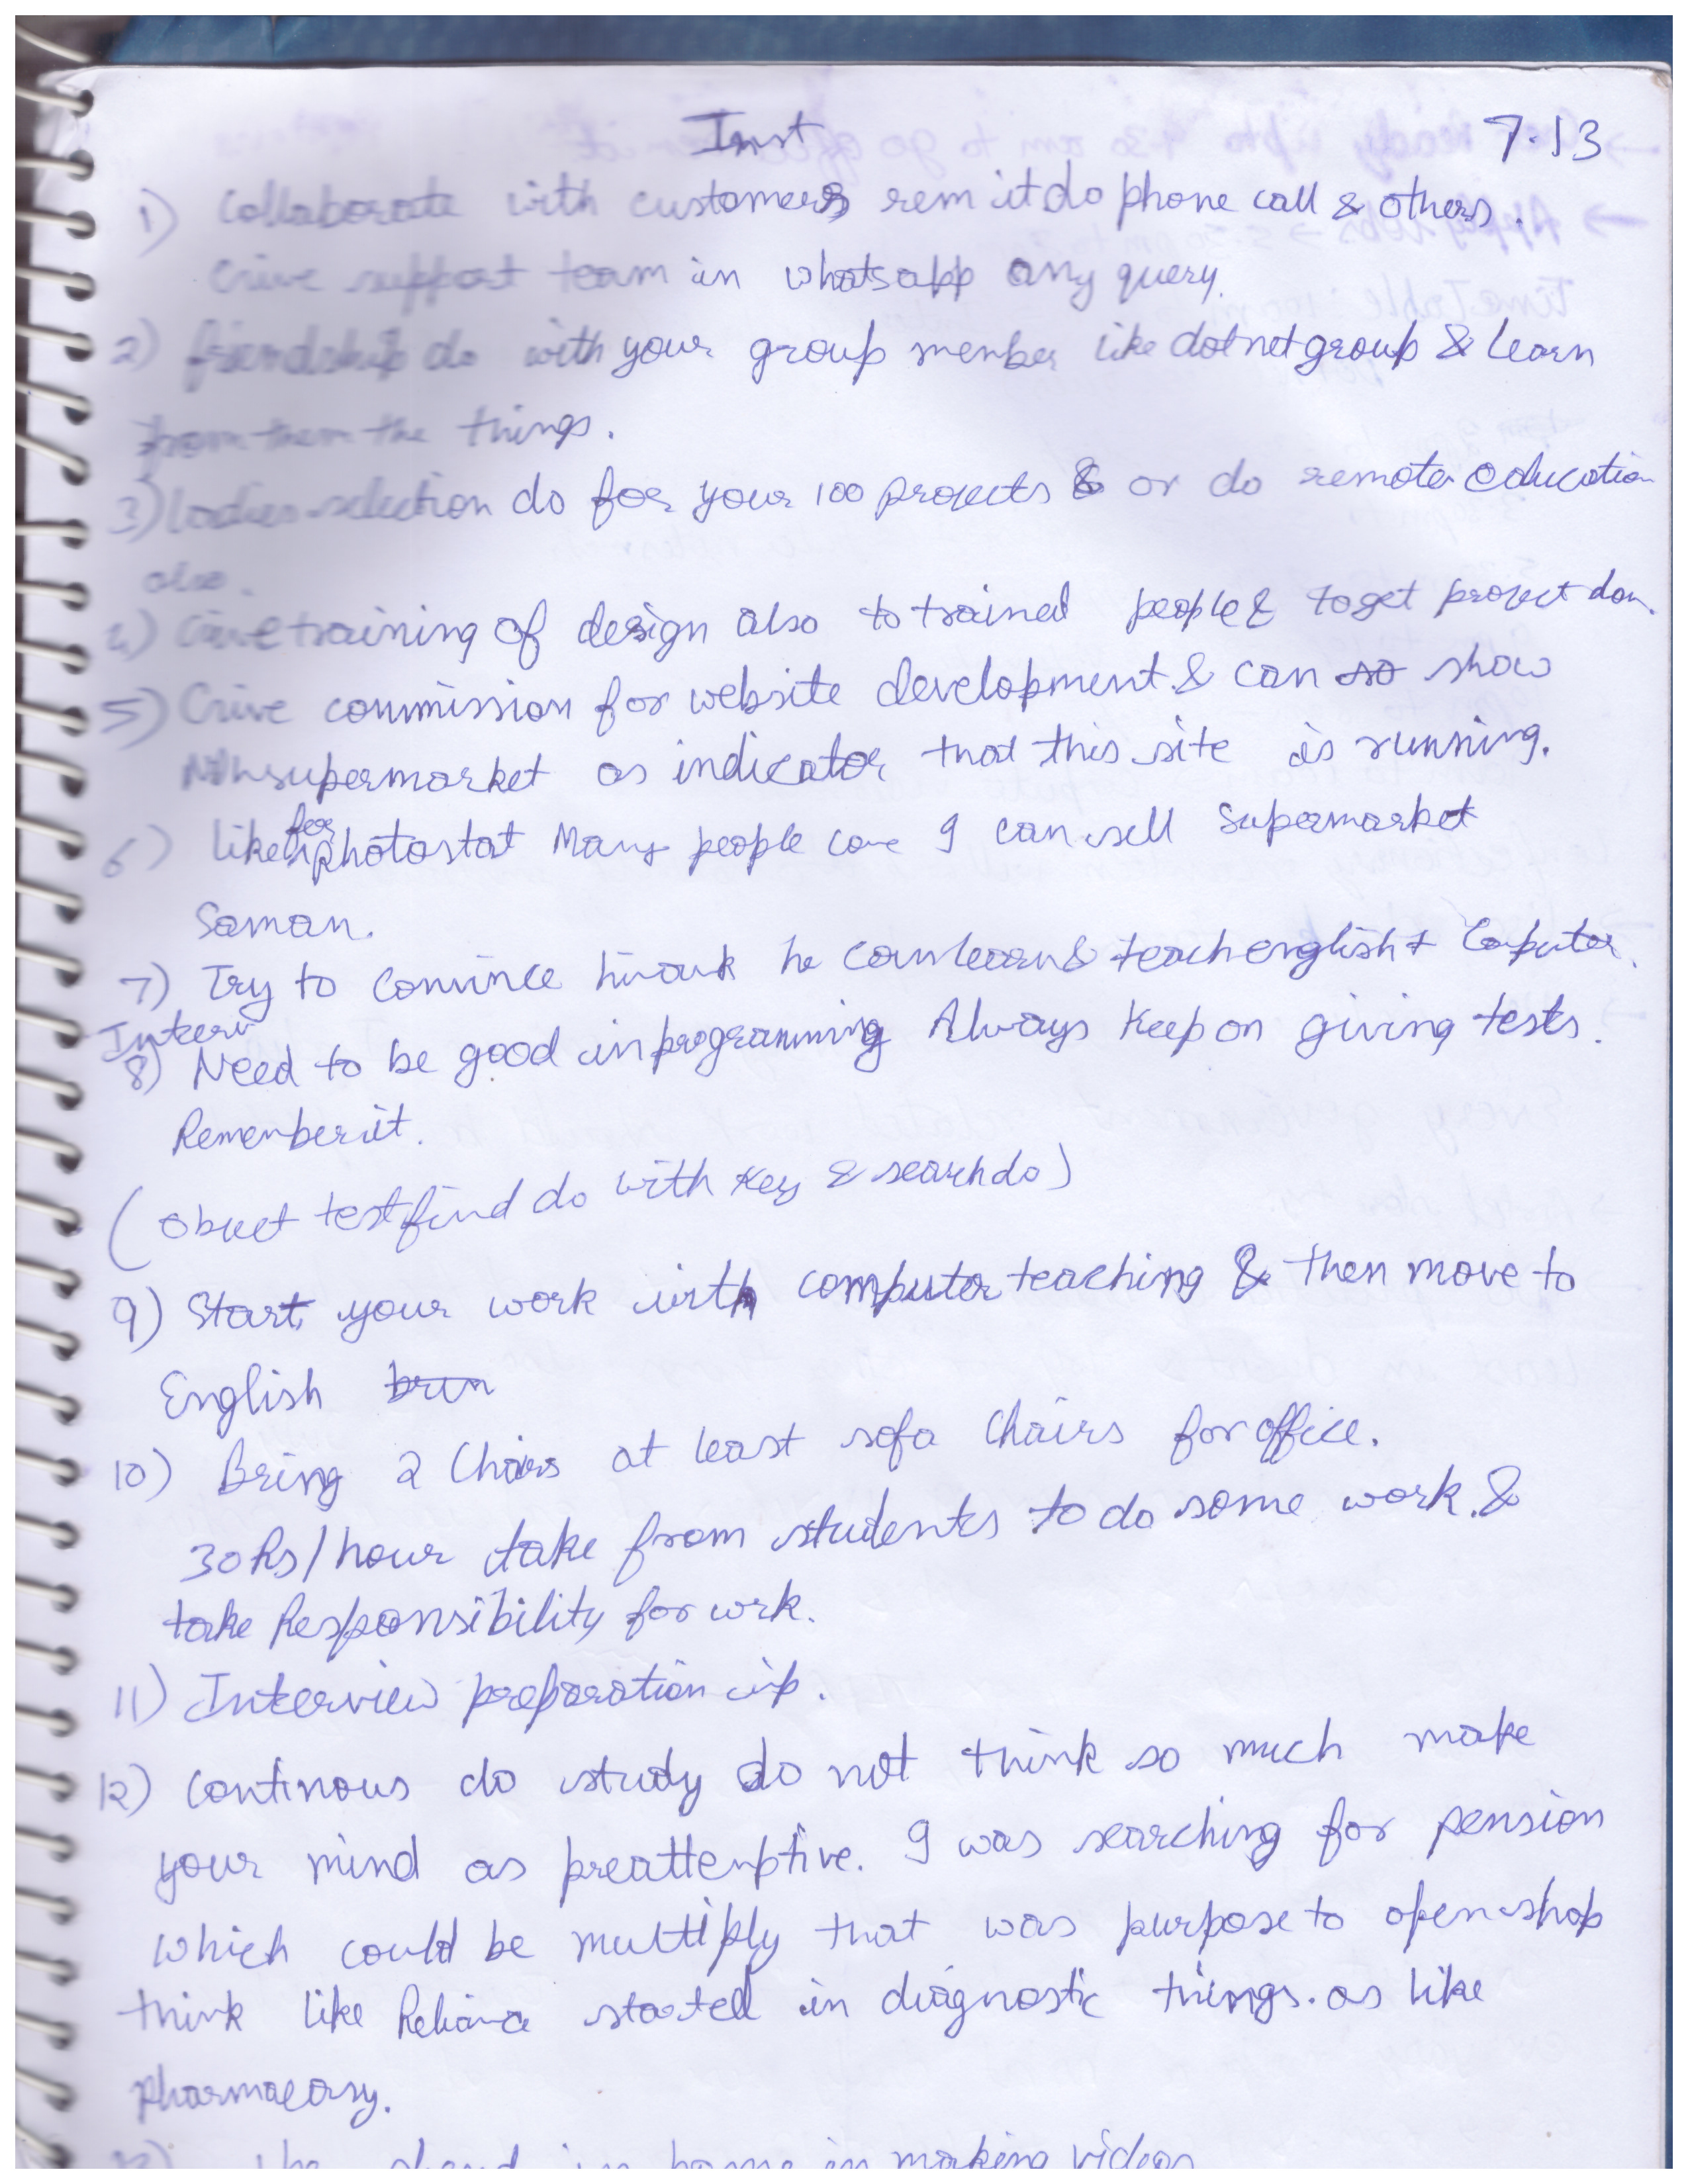 Inst 7.13
1) Collaborate with customers rem it do phone call & others.
Give support team in whatsapp any query.
2) friendship do with your group menber like dotnet group & learn
from them the things.
3) ladies selection do for your 100 projects & or do remote education
also.
4) Give training of design also to trained people & to get project don.
5) Give commission for website development & can so show
supermarket as indicator that this site is running.
6) like for photostat Many people come I can sell supermarket
Saman.
7) Try to convince he can learn & teach english + Coputer.
Interv
8) Need to be good in programming Always keep on giving tests.
Remenber it.
(Object test find do with key & search do)
9) Start your work with computer teaching & then move to
English
10) Bring 2 Chairs at least sofa chairs for office.
30 Rs/hour take from students to do some work. &
take Responsibility for wrk.
11) Interview preparation
12) continous do study do not think so much make
your mind as preattemptive. I was searching for pension
which could be multiply that was purpose to open shop
think like Reliance started in diagnostic things. as like
pharmaeasy.
in home in making videos